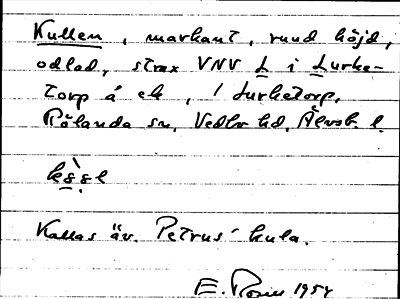 Kullen, markant, rund höjd,
odlad, strax VNV L i Lurke-
torp å ek, / Lurketorp,
Rölanda sn, Vedbo hd, Älvsb. l.
Kallas äv. Petrus' kula.
E. Rosell 1954